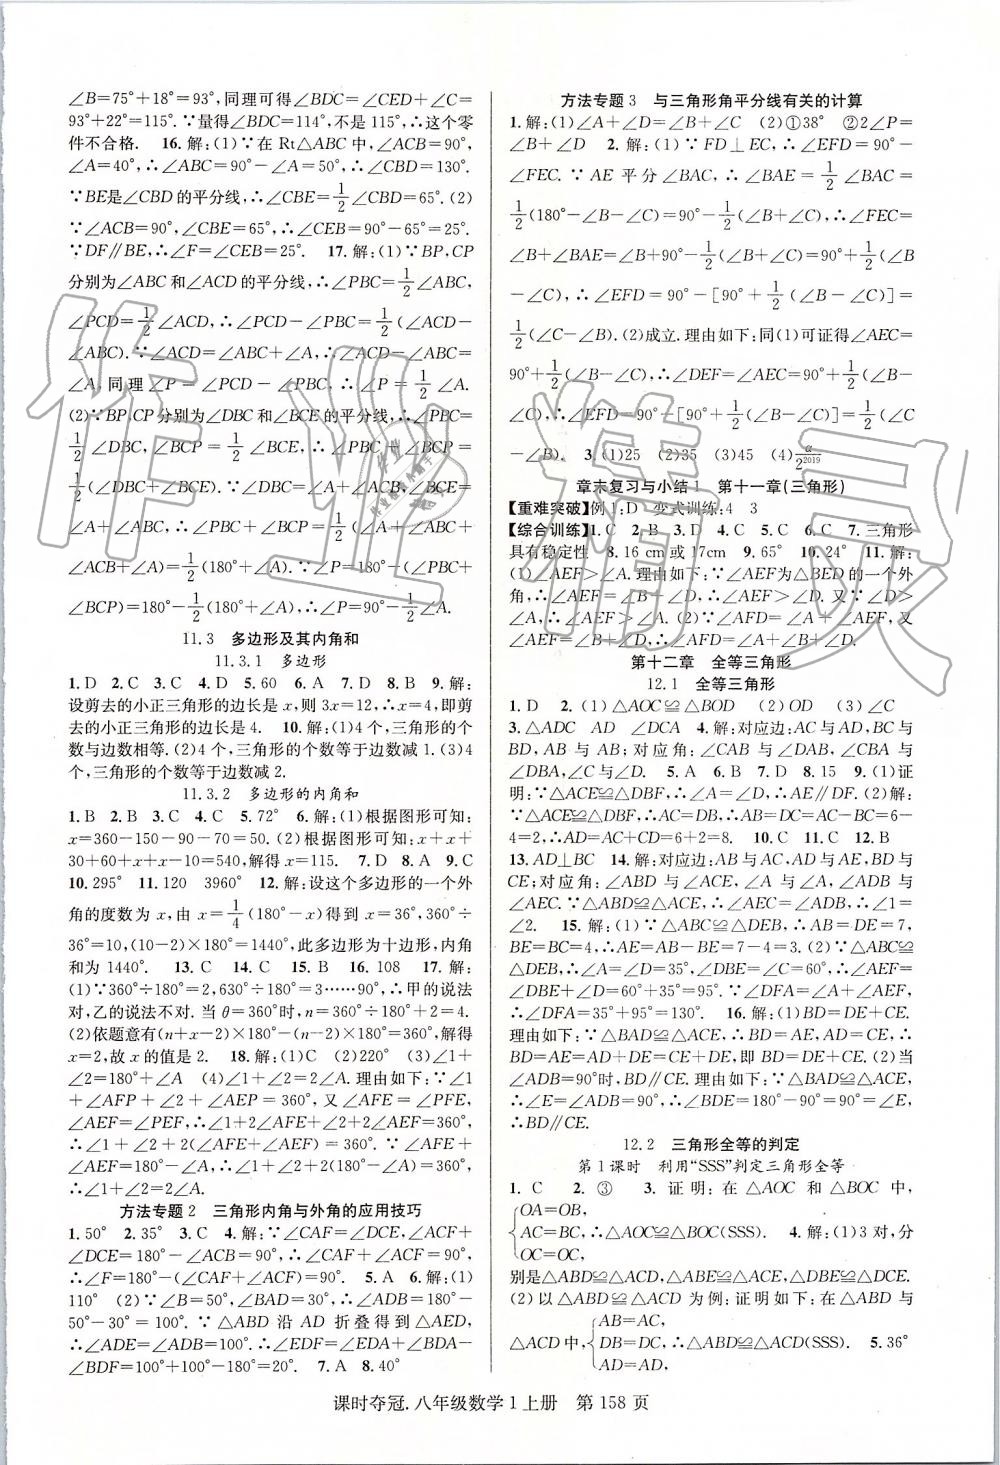 ∠B=75°+18°=93°,同理可得∠BDC=∠CED+∠C=
93°+22°=115°.∵量得∠BDC=114°,不是115°,∴这个零
件不合格. 16.解:(1)∵在Rt△ABC中,∠ACB=90°,
∠A=40°,∴∠ABC=90°-∠A=50°,∴∠CBD=130°.
∵BE是∠CBD的平分线,∴∠CBE=1/2∠CBD=65°.(2)
∵∠ACB=90°,∠CBE=65°,∴∠CEB=90°-65°=25°.
∵DF∥BE,∴∠F=∠CEB=25°. 17.解:(1)∵BP,CP
分别为∠ABC和∠ACD的平分线,∴∠PBC=1/2∠ABC,
∠PCD=1/2∠ACD,∴∠PCD-∠PBC=1/2(∠ACD-
∠ABC).∵∠ACD=∠ABC+∠A,∴∠ACD-∠ABC=
∠A,同理∠P=∠PCD-∠PBC,∴∠P=1/2∠A.
(2)∵BP,CP分别为∠DBC和∠BCE的平分线,∴∠PBC=
1/2∠DBC,∠BCP=1/2∠BCE,∴∠PBC+∠BCP=
1/2(∠DBC+∠BCE).∵∠DBC+∠BCE=180°
+∠A,∴∠PBC+∠BCP=1/2(∠A+∠ABC+
∠ACB+∠A)=1/2(180°+∠A).∵∠P=180°-(∠PBC+
∠BCP)=180°-1/2(180°+∠A),∴∠P=90°-1/2∠A.
11.3 多边形及其内角和
11.3.1 多边形
1.D 2.C 3.C 4.D 5.60 6.A 7.D 8.B 9.解:
设剪去的小正三角形的边长是x,则3x=12,∴x=4,即剪
去的小正三角形的边长是4. 10.解:(1)4个,三角形的个
数与边数相等.(2)4个,三角形的个数等于边数减1.(3)4
个,三角形的个数等于边数减2.
11.3.2 多边形的内角和
1.B 2.B 3.C 4.C 5.72° 6.解:(1)根据图形可知:
x=360-150-90-70=50.(2)根据图形可知:x+x+
30+60+x+x-10=540,解得x=115. 7.D 8.A 9.C
10.295° 11.120 3960° 12.解:设这个多边形的一个外
角的度数为x,由x=1/4(180°-x)得到x=36°,360°÷
36°=10,(10-2)×180°=1440°,此多边形为十边形,内角
和为1440°. 13.C 14.C 15.B 16.108 17.解:
(1)∵360°÷180°=2,630°÷180°=3……90°,∴甲的说法
对,乙的说法不对.当θ=360°时,n=360°÷180°+2=4.
(2)依题意有(n+x-2)×180°-(n-2)×180°=360°,解得
x=2,故x的值是2. 18.解:(1)C (2)220° (3)∠1+
∠2=180°+∠A (4)∠1+∠2=2∠A.理由如下:∵∠1
+∠AFP+∠2+∠AEP=360°,又∠AFE=∠PFE,
∠AEF=∠PEF,∴∠1+2∠AFE+∠2+2∠AEF=360°,
∴∠1+∠2+2(∠AFE+∠AEF)=360°.∵∠AFE+
∠AEF=180°-∠A,∴∠1+∠2+2(180°-∠A)=360°,
∴∠1+∠2=2∠A.
方法专题2 三角形内角与外角的应用技巧
1.50° 2.35° 3.C 4.解:∵∠CAF=∠DCE,∠ACF+
∠DCE=180°-∠ACB=90°,∴∠CAF+∠ACF=90°,
∴∠F=180°-(∠CAF+∠ACF)=90°. 5.A 6.解:(1)
110° (2)∵∠B=50°,∠BAD=30°,∴∠ADB=180°-
50°-30°=100°.∵△ABD沿AD折叠得到△AED,
∴∠ADE=∠ADB=100°.∴∠EDF=∠EDA+∠BDA-
∠BDF=100°+100°-180°=20°. 7.A 8.40°
方法专题3 与三角形角平分线有关的计算
1.解:(1)∠A+∠D=∠B+∠C (2)①38° ②2∠P=
∠B+∠D 2.解:(1)∵FD⊥EC,∴∠EFD=90°-
∠FEC.∵AE平分∠BAC,∴∠BAE=1/2∠BAC=
1/2(180°-∠B-∠C)=90°-1/2(∠B+∠C),∴∠FEC=
∠B+∠BAE=∠B+90°-1/2(∠B+∠C)=90°+1/2(∠B
-∠C),∴∠EFD=90°-[90°+1/2(∠B-∠C)]=
1/2(∠C-∠B).(2)成立.理由如下:同(1)可证得∠AEC=
90°+1/2(∠B-∠C),∴∠DEF=∠AEC=90°+1/2(∠B-
∠C),∴∠EFD=90°-[90°+1/2(∠B-∠C)]=1/2(∠C
-∠B). 3.(1)25 (2)35 (3)45 (4)α/2^2019
章末复习与小结1 第十一章(三角形)
【重难突破】例1:D 变式训练:4 3
【综合训练】1.C 2.B 3.D 4.C 5.C 6.C 7.三角形
具有稳定性 8.16 cm或17cm 9.65° 10.24° 11.解:
(1)∠AEF>∠A.理由如下:∵∠AEF为△BED的一个外
角,∴∠AEF=∠B+∠D,∴∠AEF>∠D.又∵∠A=
∠D,∴∠AEF>∠A.(2)∵∠AFD=∠A+∠AEF,又
∠AEF=∠B+∠D,∴∠AFD=∠A+∠B+∠D.
第十二章 全等三角形
12.1 全等三角形
1.D 2.(1)△AOC≌△BOD (2)OD (3)∠C
3.△ADC AD ∠DCA 4.解:对应边:AC与AD,BC与
BD,AB与AB;对应角:∠CAB与∠DAB,∠CBA与
∠DBA,∠C与∠D. 5.A 6.B 7.D 8.15 9.(1)证
明:∵△ACE≌△DBF,∴∠A=∠D,∴AE∥DF.(2)解:
∵△ACE≌△DBF,∴AC=DB,∴AB=DC=AC-BC=6-
4=2,∴AD=AC+CD=6+2=8. 10.C 11.C 12.B
13.AD⊥BC 14.解:对应边:AB与AC,AD与AE,BD与
CE;对应角:∠ABD与∠ACE,∠A与∠A,∠ADB与
∠AEC.∵△ABD≌△ACE,∴∠AEC=∠ADB,∴∠1=
∠2. 15.解:(1)∵△ABC≌△DEB,∴AB=DE=7,
BE=BC=4,∴AE=AB-BE=7-4=3.(2)∵△ABC≌
△DEB,∴∠A=∠D=35°,∠DBE=∠C=60°,∴∠AEF=
∠DBE+∠D=60°+35°=95°.∵∠DFA=∠A+∠AEF,
∴∠DFA=35°+95°=130°. 16.解:(1)BD=DE+CE.
理由如下:∵△BAD≌△ACE,∴BD=AE,AD=CE,∴
BD=AE=AD+DE=CE+DE,即BD=DE+CE.(2)当
∠ADB=90°时,BD∥CE.理由如下:∵△BAD≌△ACE,
∴∠E=∠ADB=90°,∴∠BDE=180°-90°=90°=∠E,
∴BD∥CE.
12.2 三角形全等的判定
第1课时 利用“SSS”判定三角形全等
1.C 2.③ 3.证明:在△AOC和△BOC中,
OA=OB,
AC=BC,∴△AOC≌△BOC(SSS). 4.解:(1)3对,分
OC=OC,
别是△ABD≌△ACD,△ABE≌△ACE,△DBE≌△DCE.
(2)以△ABD≌△ACD为例:证明如下:在△ABD与
△ACD中,
AB=AC,
DB=DC,∴△ABD≌△ACD(SSS). 5.36°
AD=AD,
课时夺冠.八年级数学1上册 第158页
作业精灵